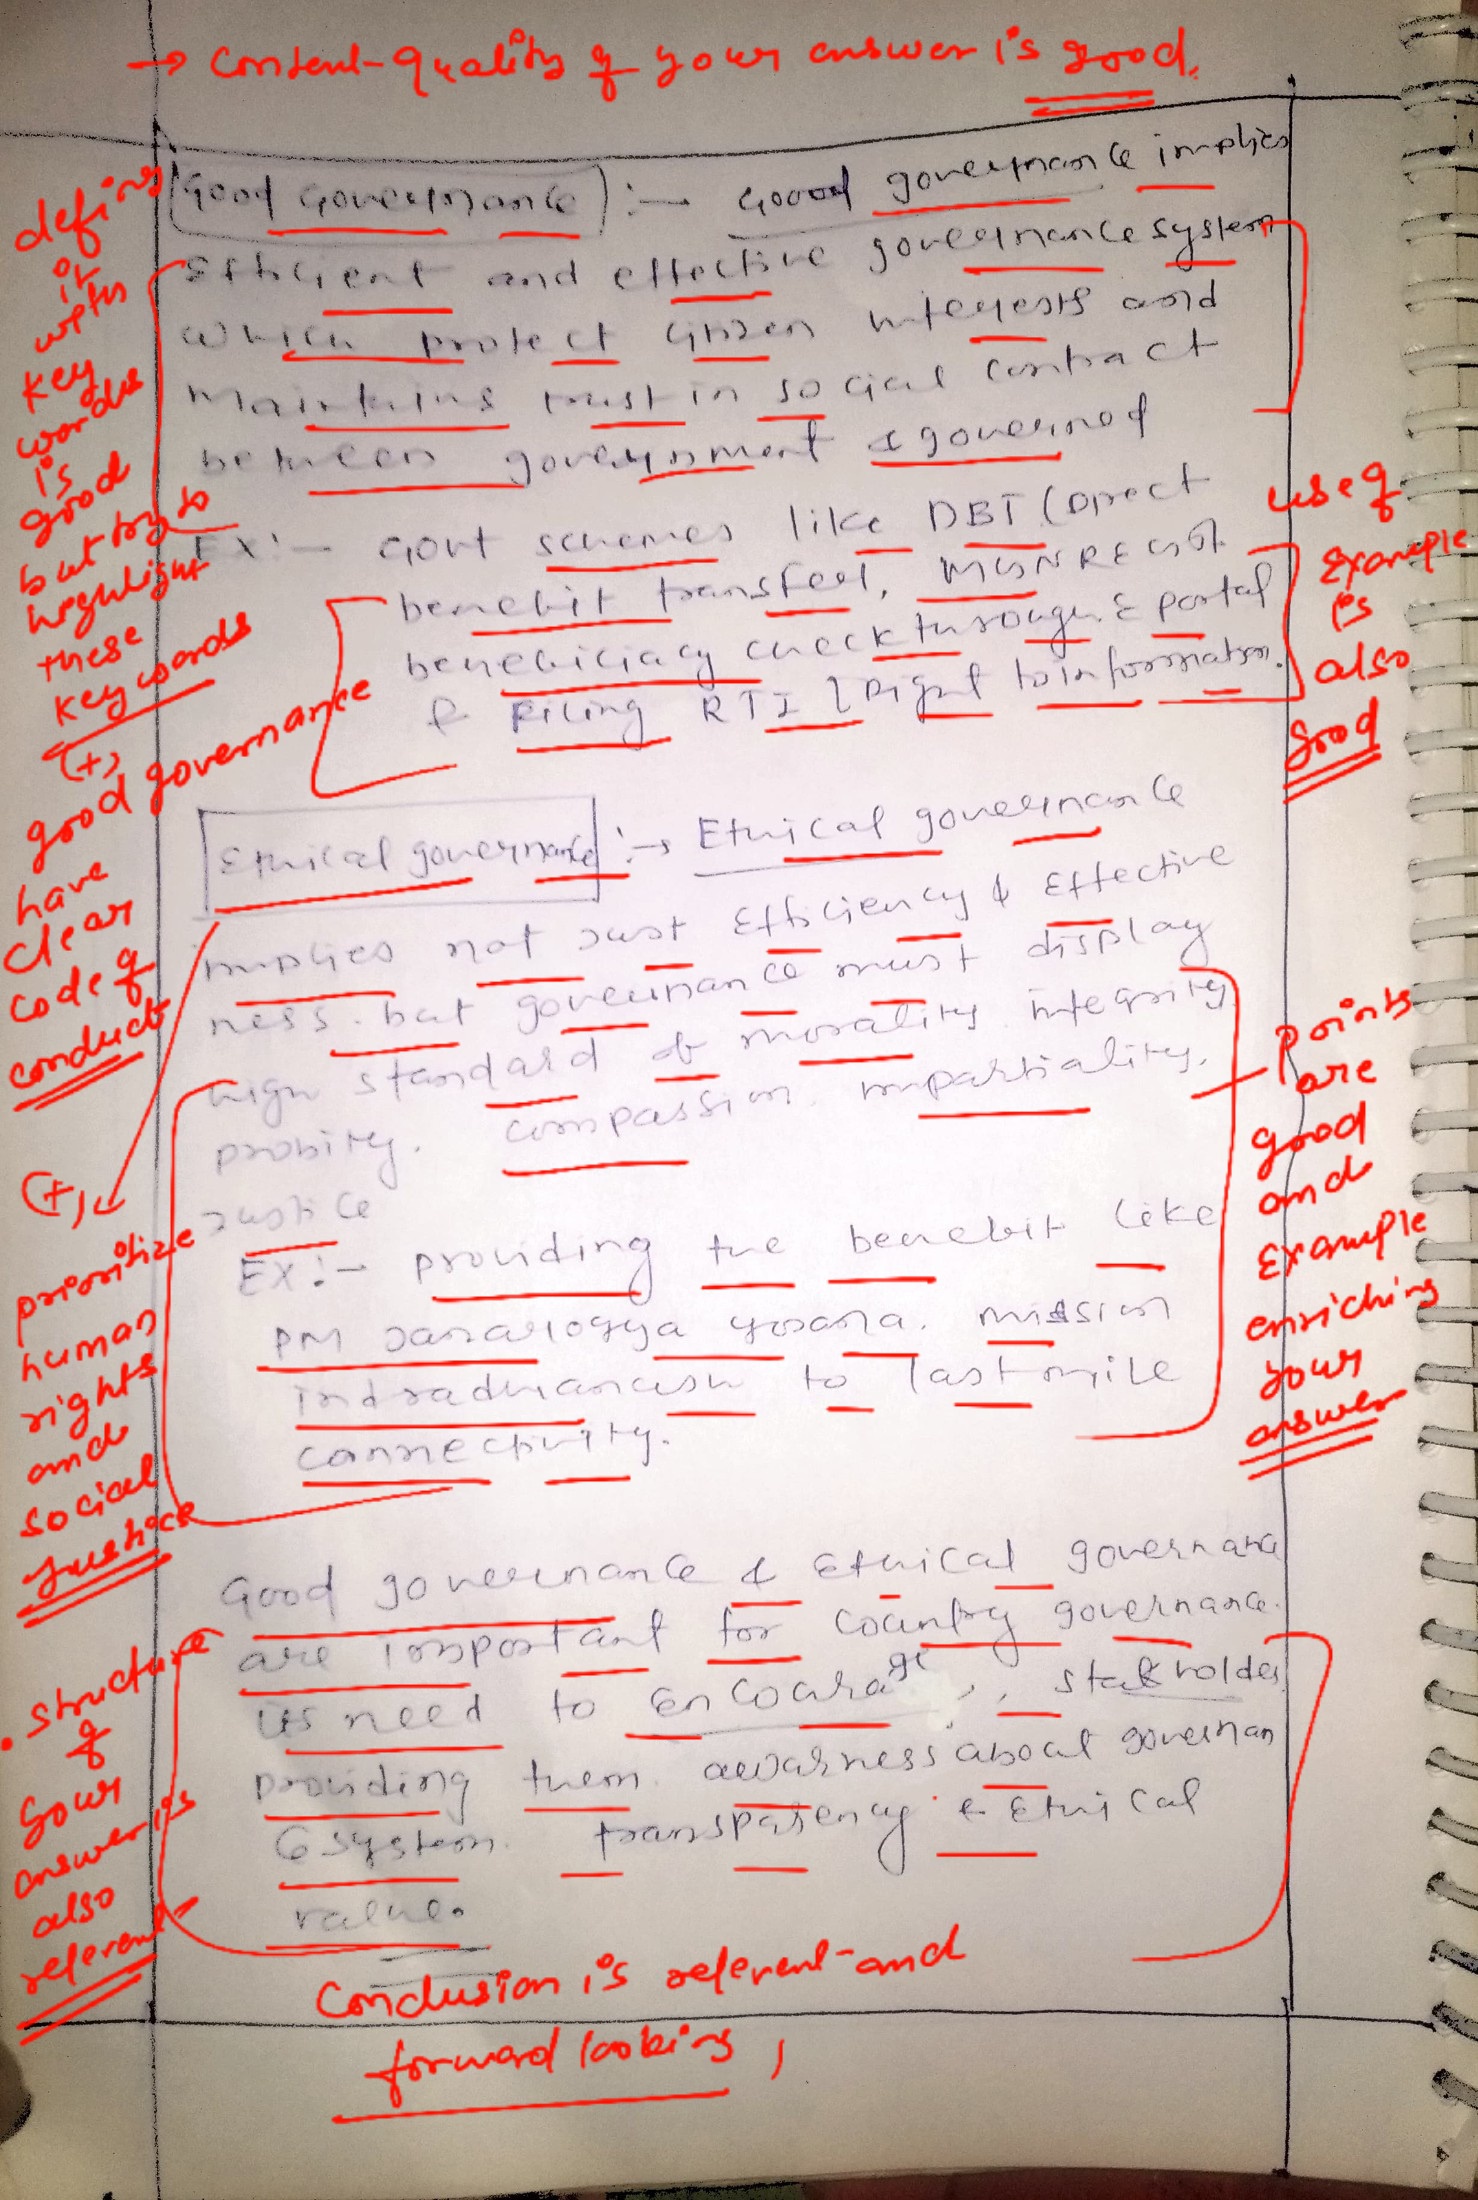 → Content-quality of your answer is good.
Good Governance :→ Good governance implies
Efficient and effective governance system
which protect citizen interests and
maintains trust in social contract
between government & governed
EX:- Govt schemes like DBT (Direct
benefit transfer), MGNREGA
beneficiary check through E portal
& Filing RTI (Right to information.
defining
it
with
key
words
is
good
but try to
highlight
these
key words
(+)
good governance
have
clear
code of
conduct
use of
Example
is
also
good
Ethical governance :→ Ethical governance
implies not just Efficiency & Effective
ness. but governance must display
high standard of morality integrity
probity. compassion. impartiality.
Justice
EX:- providing the benefit like
PM Janarogya yojana. mission
indradhanush to last mile
connectivity.
(+)
prioritize
human
rights
and
social
justice
points
are
good
and
Example
enriching
your
answer
Good governance & Ethical governance
are important for country governance.
its need to encourage, stakholder
providing them. awarness about governan
ce system. transparency & Ethical
value.
. structure
of
your
answer is
also
relevent
Conclusion is relevent and
forward looking,